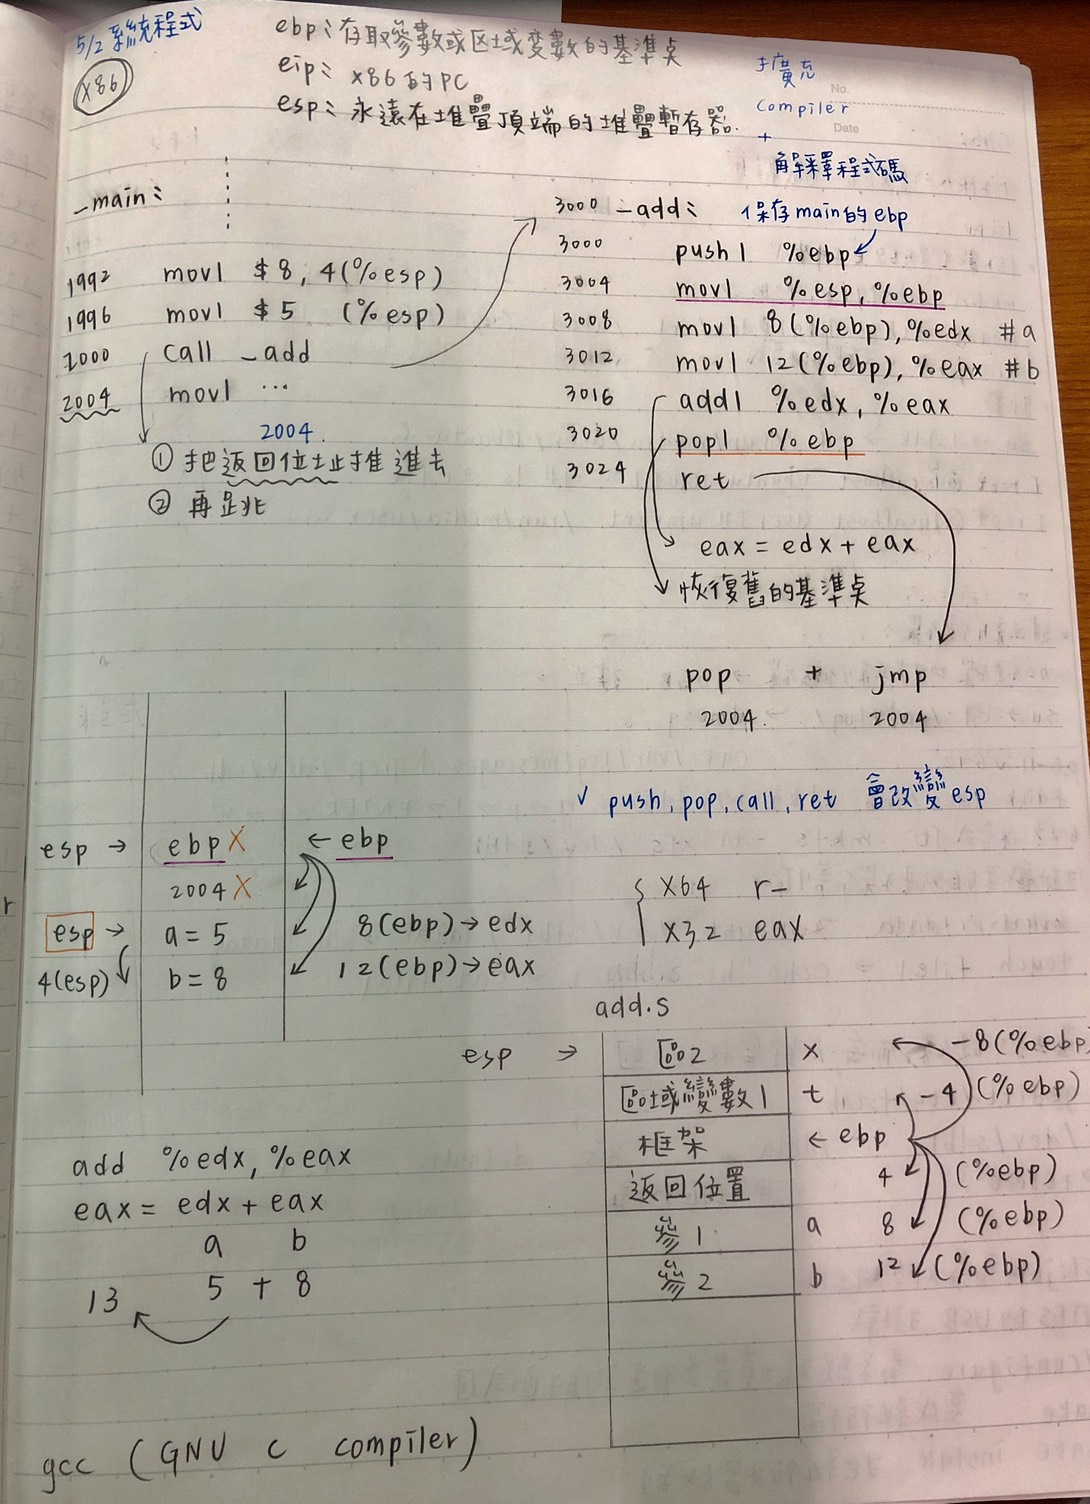 5/2 系統程式
X86
ebp: 存取參數或区域变數的基準桌
eip: X86的PC
esp: 永遠在堆疊頂端的堆疊暫存器.
No.
Date
擴充
compiler
+
解釋程式碼
_main:
1992 movl $8, 4(%esp)
1996 movl $5 (%esp)
2000 call _add
2004 movl ...
2004.
① 把返回位址推進去
② 再跳
3000 _add: 保存main的ebp
3000 pushl %ebp
3004 movl %esp, %ebp
3008 movl 8(%ebp), %edx #a
3012 movl 12(%ebp), %eax #b
3016 addl %edx, %eax
3020 popl %ebp
3024 ret
eax = edx + eax
恢復舊的基準桌
pop + jmp
2004. 2004
✓ push, pop, call, ret 會改變esp
esp → ebp X ← ebp
2004 X
esp → a = 5 8(ebp) → edx
4(esp) b = 8 12(ebp) → eax
X64 r-
X32 eax
add.s
esp → 區2 x -8(%ebp
區域變數1 t -4(%ebp)
框架 ← ebp
返回位置 4 (%ebp)
參1 a 8 (%ebp)
參2 b 12 (%ebp)
add %edx, %eax
eax = edx + eax
a b
13 5 + 8
gcc (GNU c compiler)